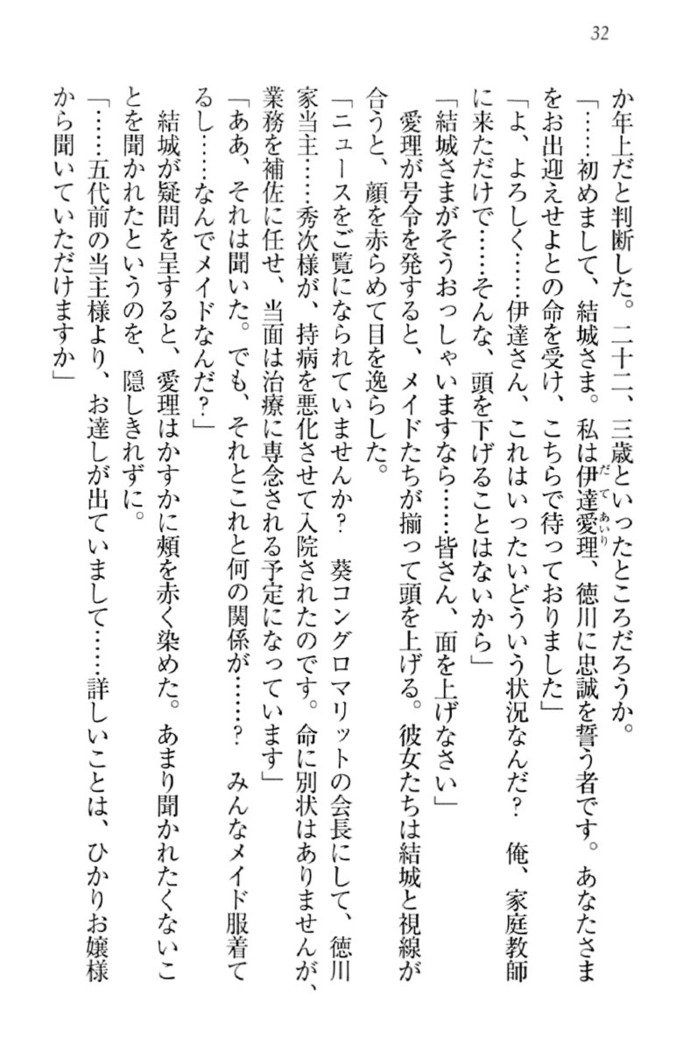 32
か年上だと判断した。二十二、三歳といったところだろうか。
「……初めまして、結城さま。私は伊達愛理、徳川に忠誠を誓う者です。あなたさま
だてあいり
をお出迎えせよとの命を受け、こちらで待っておりました」
「よ、よろしく……伊達さん、これはいったいどういう状況なんだ？　俺、家庭教師
に来ただけで……そんな、頭を下げることはないから」
「結城さまがそうおっしゃいますなら……皆さん、面を上げなさい」
　愛理が号令を発すると、メイドたちが揃って頭を上げる。彼女たちは結城と視線が
合うと、顔を赤らめて目を逸らした。
「ニュースをご覧になられていませんか？　葵コングロマリットの会長にして、徳川
家当主……秀次様が、持病を悪化させて入院されたのです。命に別状はありませんが、
業務を補佐に任せ、当面は治療に専念される予定になっています」
「ああ、それは聞いた。でも、それとこれと何の関係が……？　みんなメイド服着て
るし……なんでメイドなんだ？」
　結城が疑問を呈すると、愛理はかすかに頬を赤く染めた。あまり聞かれたくないこ
とを聞かれたというのを、隠しきれずに。
「……五代前の当主様より、お達しが出ていまして……詳しいことは、ひかりお嬢様
から聞いていただけますか」